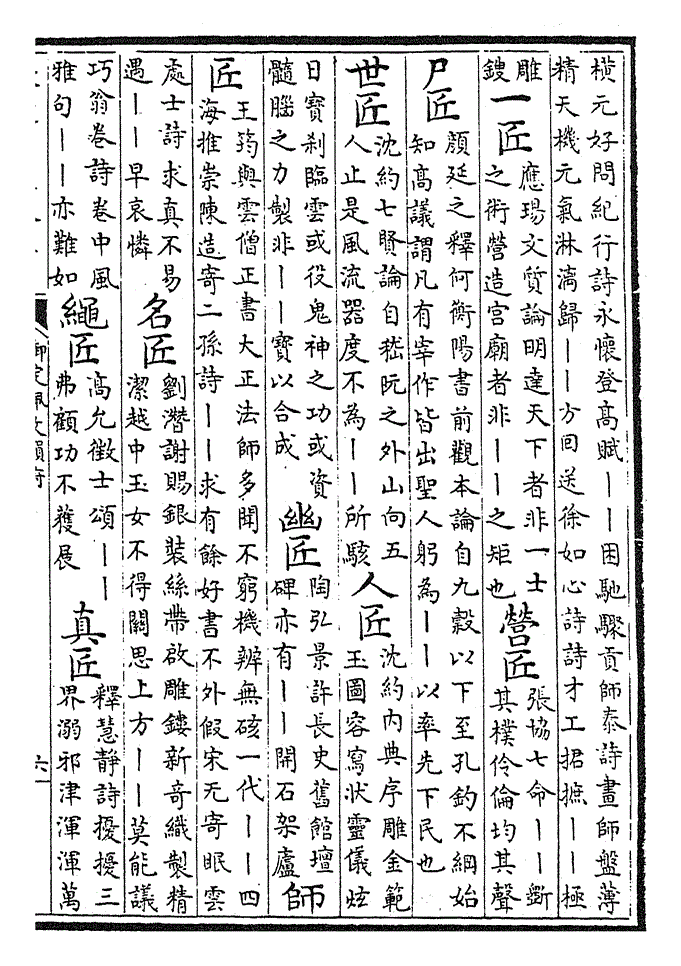 横元好問紀行詩永懷登高賦丨丨困馳驟貢師泰詩畫師盤薄
精天機元氣淋漓歸丨丨方回送徐如心詩詩才工捃摭丨丨極
雕
鎪
一匠
應瑒文質論明達天下者非一士
之術營造宮廟者非丨丨之矩也
營匠
張協七命丨丨斲
其樸伶倫均其聲
尸匠
顔延之釋何衡陽書前觀本論自九穀以下至孔釣不綱始
知高議謂凡有宰作皆出聖人躬為丨丨以率先下民也
世匠
沈約七賢論自嵇阮之外山向五
人止是風流器度不為丨丨所駭
人匠
沈約内典序雕金範
玉圖容寫狀靈儀炫
日寶刹臨雲或役鬼神之功或資
髓腦之力製非丨丨寶以合成
幽匠
陶弘景許長史舊館壇
碑亦有丨丨開石架廬
師
匠
王筠與雲僧正書大正法師多聞不窮機辨無硋一代丨丨四
海推崇陳造寄二孫詩丨丨求有餘好書不外假宋无寄眠雲
處士詩求真不易
遇丨丨早哀憐
名匠
劉潛謝賜銀裝絲帶啟雕鏤新奇織製精
潔越中玉女不得關思上方丨丨莫能議
巧翁卷詩卷中風
雅句丨丨亦難如
繩匠
高允徵士頌丨丨
弗顧功不獲展
真匠
釋慧靜詩擾擾三
界溺邪津渾渾萬
御定佩文韻府
六